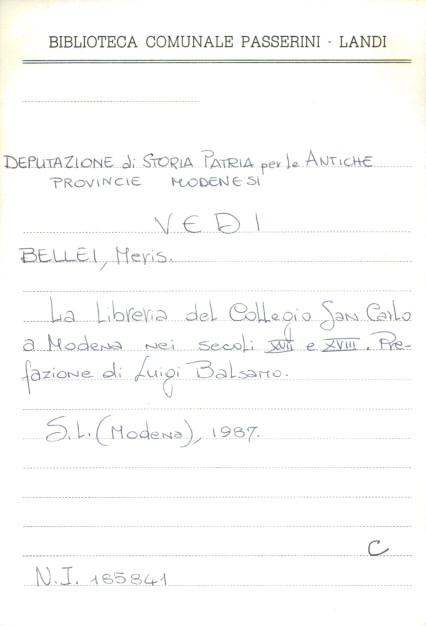 BIBLIOTECA COMUNALE PASSERINI - LANDI
DEPUTAZIONE di STORIA PATRIA per le ANTICHE
PROVINCIE MODENESI
VEDI
BELLEI, Meris.
La Libreria del Collegio San Carlo
a Modena nei secoli XVII e XVIII. Pre-
fazione di Luigi Balsamo.
S.L. (Modena), 1987.
C
N.I. 165841